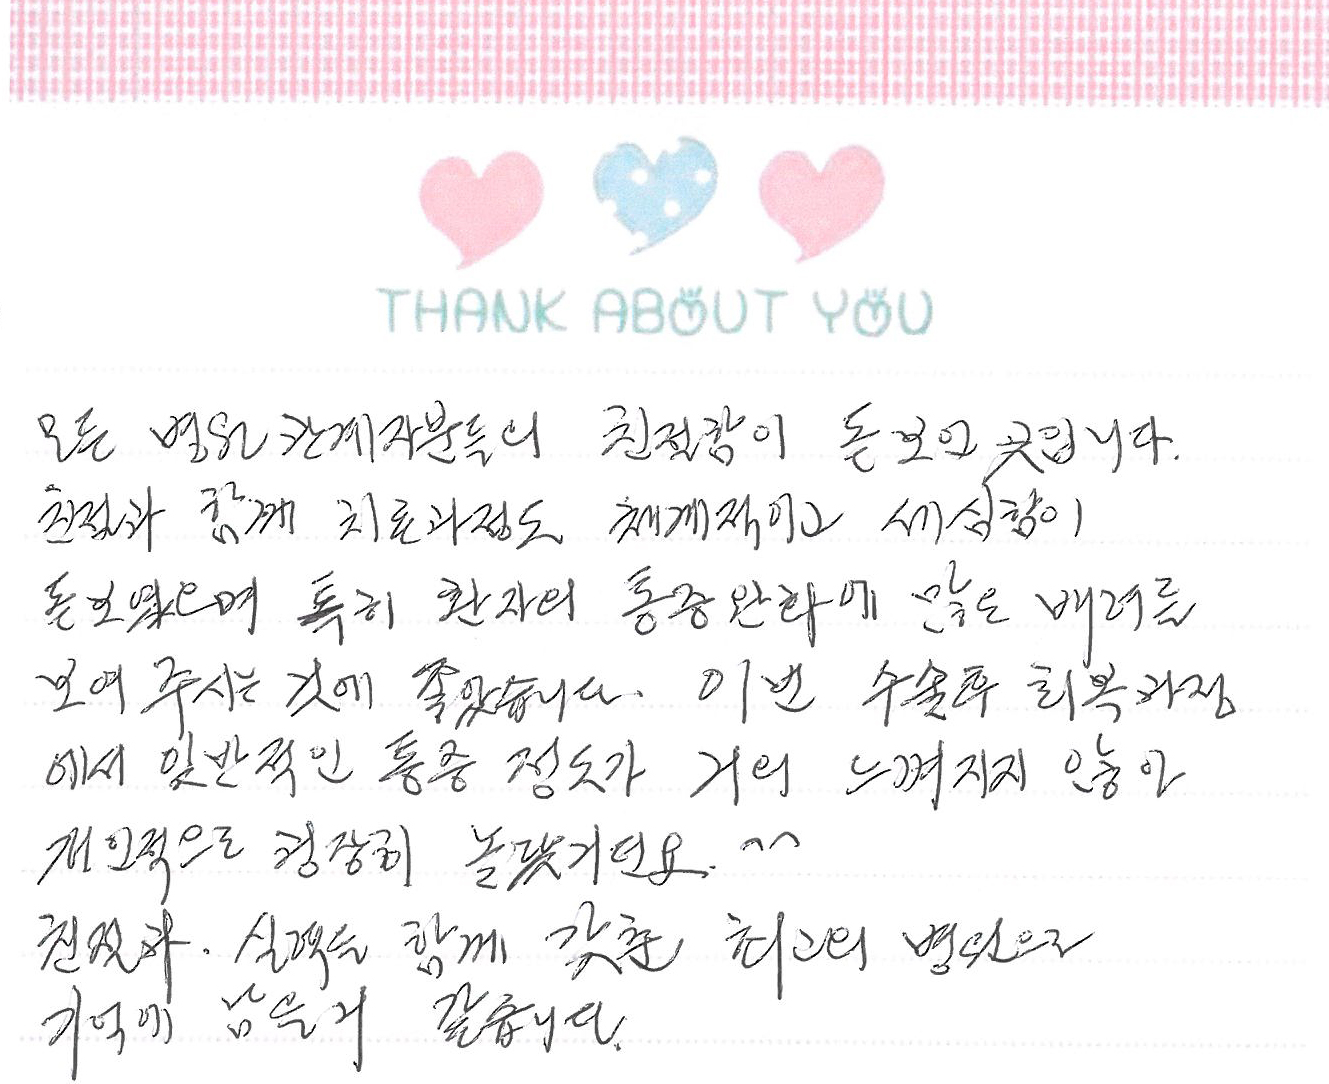 THANK ABOUT YOU
모든 병원관계자분들의 친절함이 돋보인 곳입니다.
친절과 함께 치료과정도 체계적이고 세심함이
돋보였으며 특히 환자의 통증완화에 많은 배려를
보여 주시는 것에 좋았습니다. 이번 수술후 회복과정
에서 일반적인 통증 정도가 거의 느껴지지 않아
개인적으로 굉장히 놀랬거던요. ^^
친절과. 실력을 함께 갖춘 최고의 병원으로
기억에 남을거 같습니다.